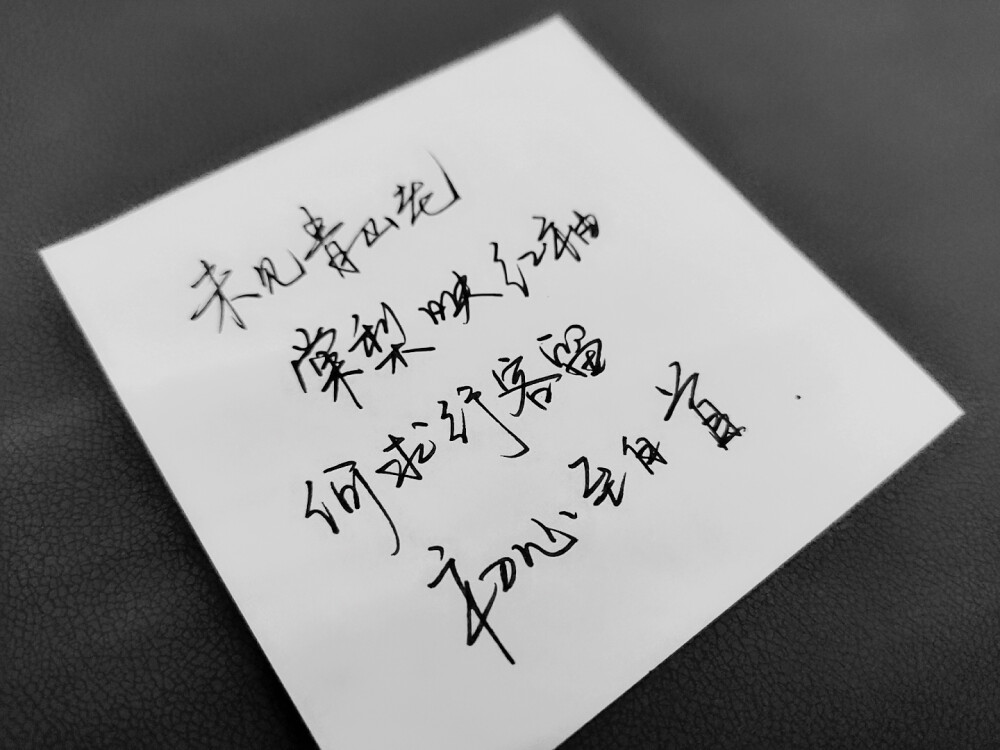 未见青山花
棠梨映红袖
何求行客留
初心至白首